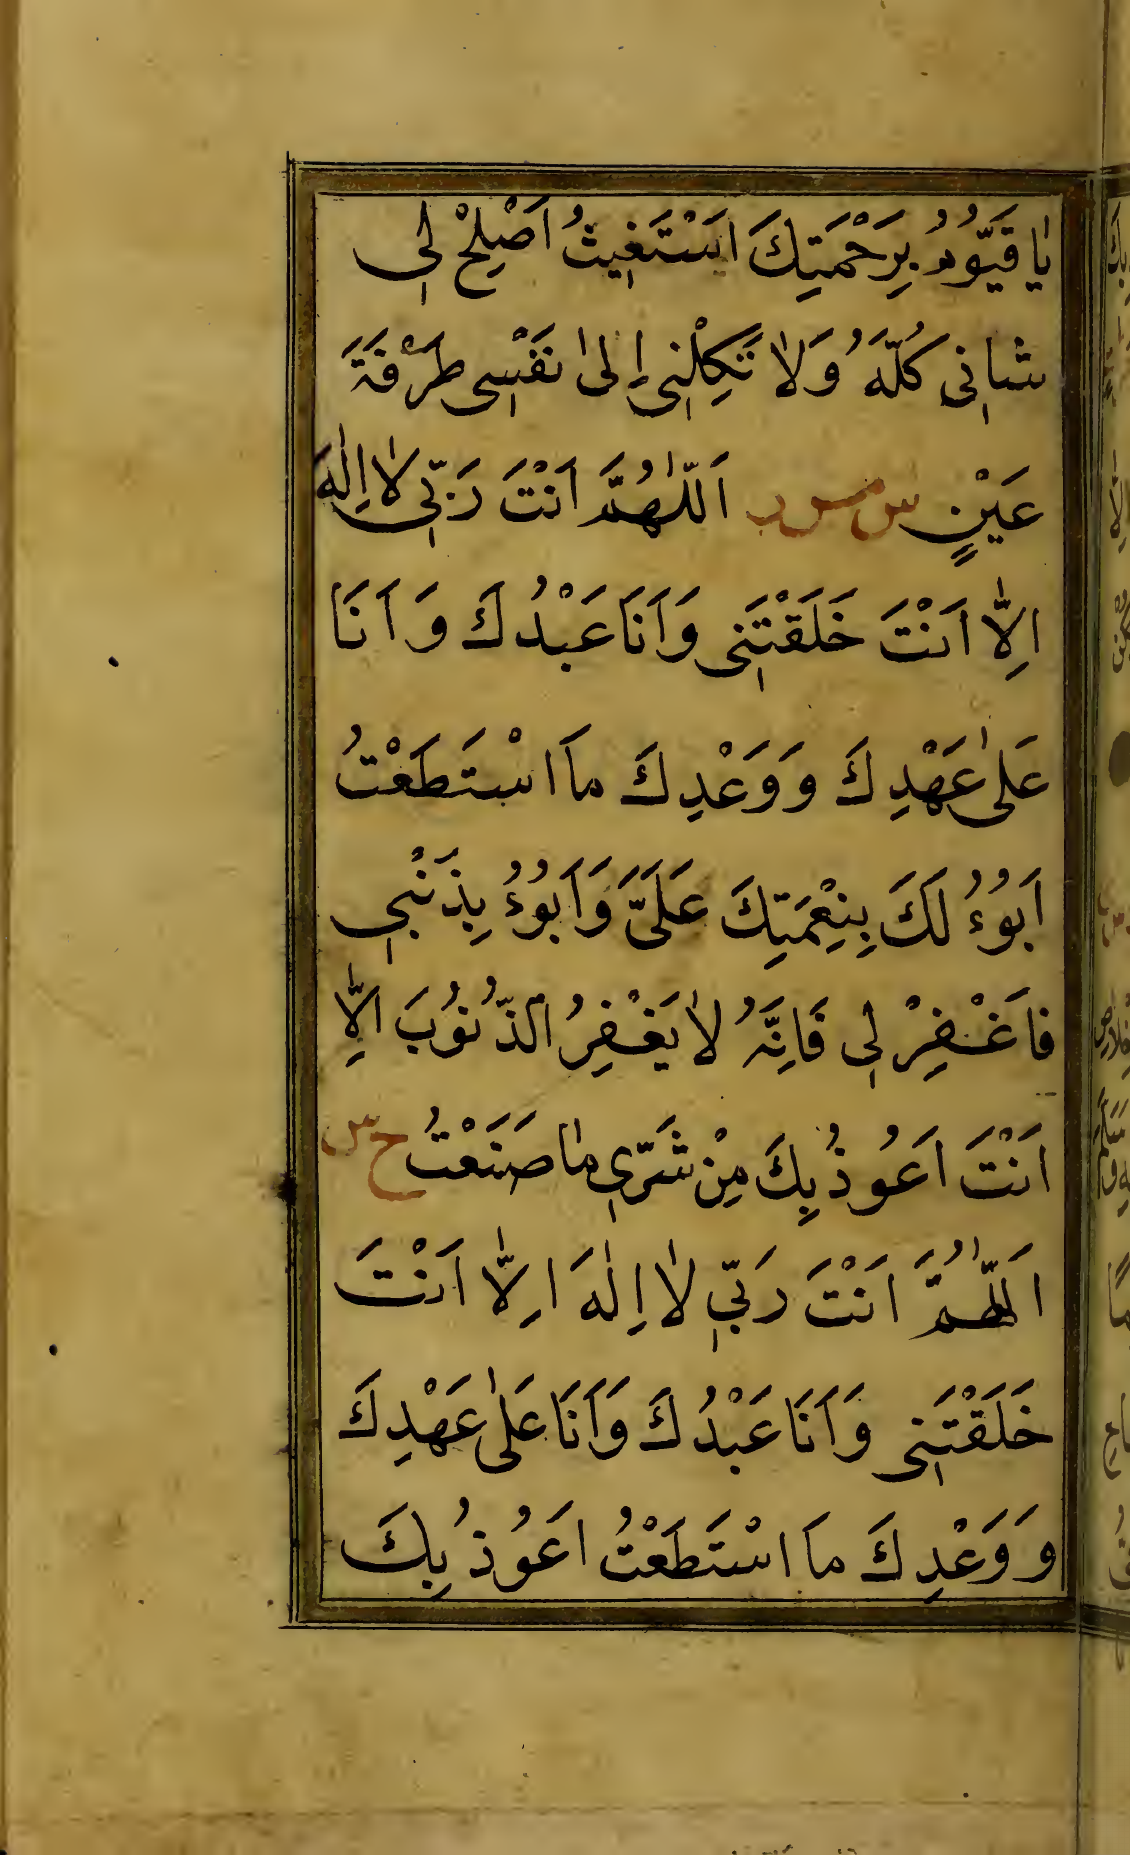 يَا قَيُّوُمُ بِرَحْمَتِكَ اَسْتَغِيثُ اَصْلِحْ لِي
شَانِي كُلَّهُ وَلَا تَكِلْنِي إِلٰى نَفْسِي طَرْفَةَ
عَيْنٍ س مس ر اَللّٰهُمَّ اَنْتَ رَبِّي لَا اِلٰهَ
اِلَّا اَنْتَ خَلَقْتَنِي وَاَنَا عَبْدُكَ وَاَنَا
عَلٰى عَهْدِكَ وَوَعْدِكَ مَا اسْتَطَعْتُ
اَبُوُءُ لَكَ بِنِعْمَتِكَ عَلَيَّ وَاَبُوُءُ بِذَنْبِي
فَاغْفِرْ لِي فَاِنَّهُ لَا يَغْفِرُ الذُّنُوُبَ اِلَّا
اَنْتَ اَعُوُذُ بِكَ مِنْ شَرِّ مَا صَنَعْتُ خ س
اَللّٰهُمَّ اَنْتَ رَبِّي لَا اِلٰهَ اِلَّا اَنْتَ
خَلَقْتَنِي وَاَنَا عَبْدُكَ وَاَنَا عَلٰى عَهْدِكَ
وَوَعْدِكَ مَا اسْتَطَعْتُ اَعُوُذُ بِكَ